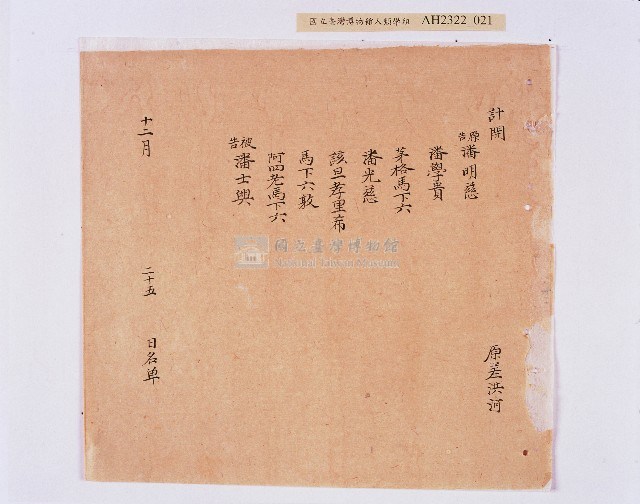 國立臺灣博物館人類學組 AH2322 021
計開
原告 潘明慈
潘學貴
茅格馬下六
潘光慈
該旦孝里希
馬下六敦
阿四老馬下六
被告 潘士興
原差洪河
十二月 二十五 日名单
國立臺灣博物館
National Taiwan Museum